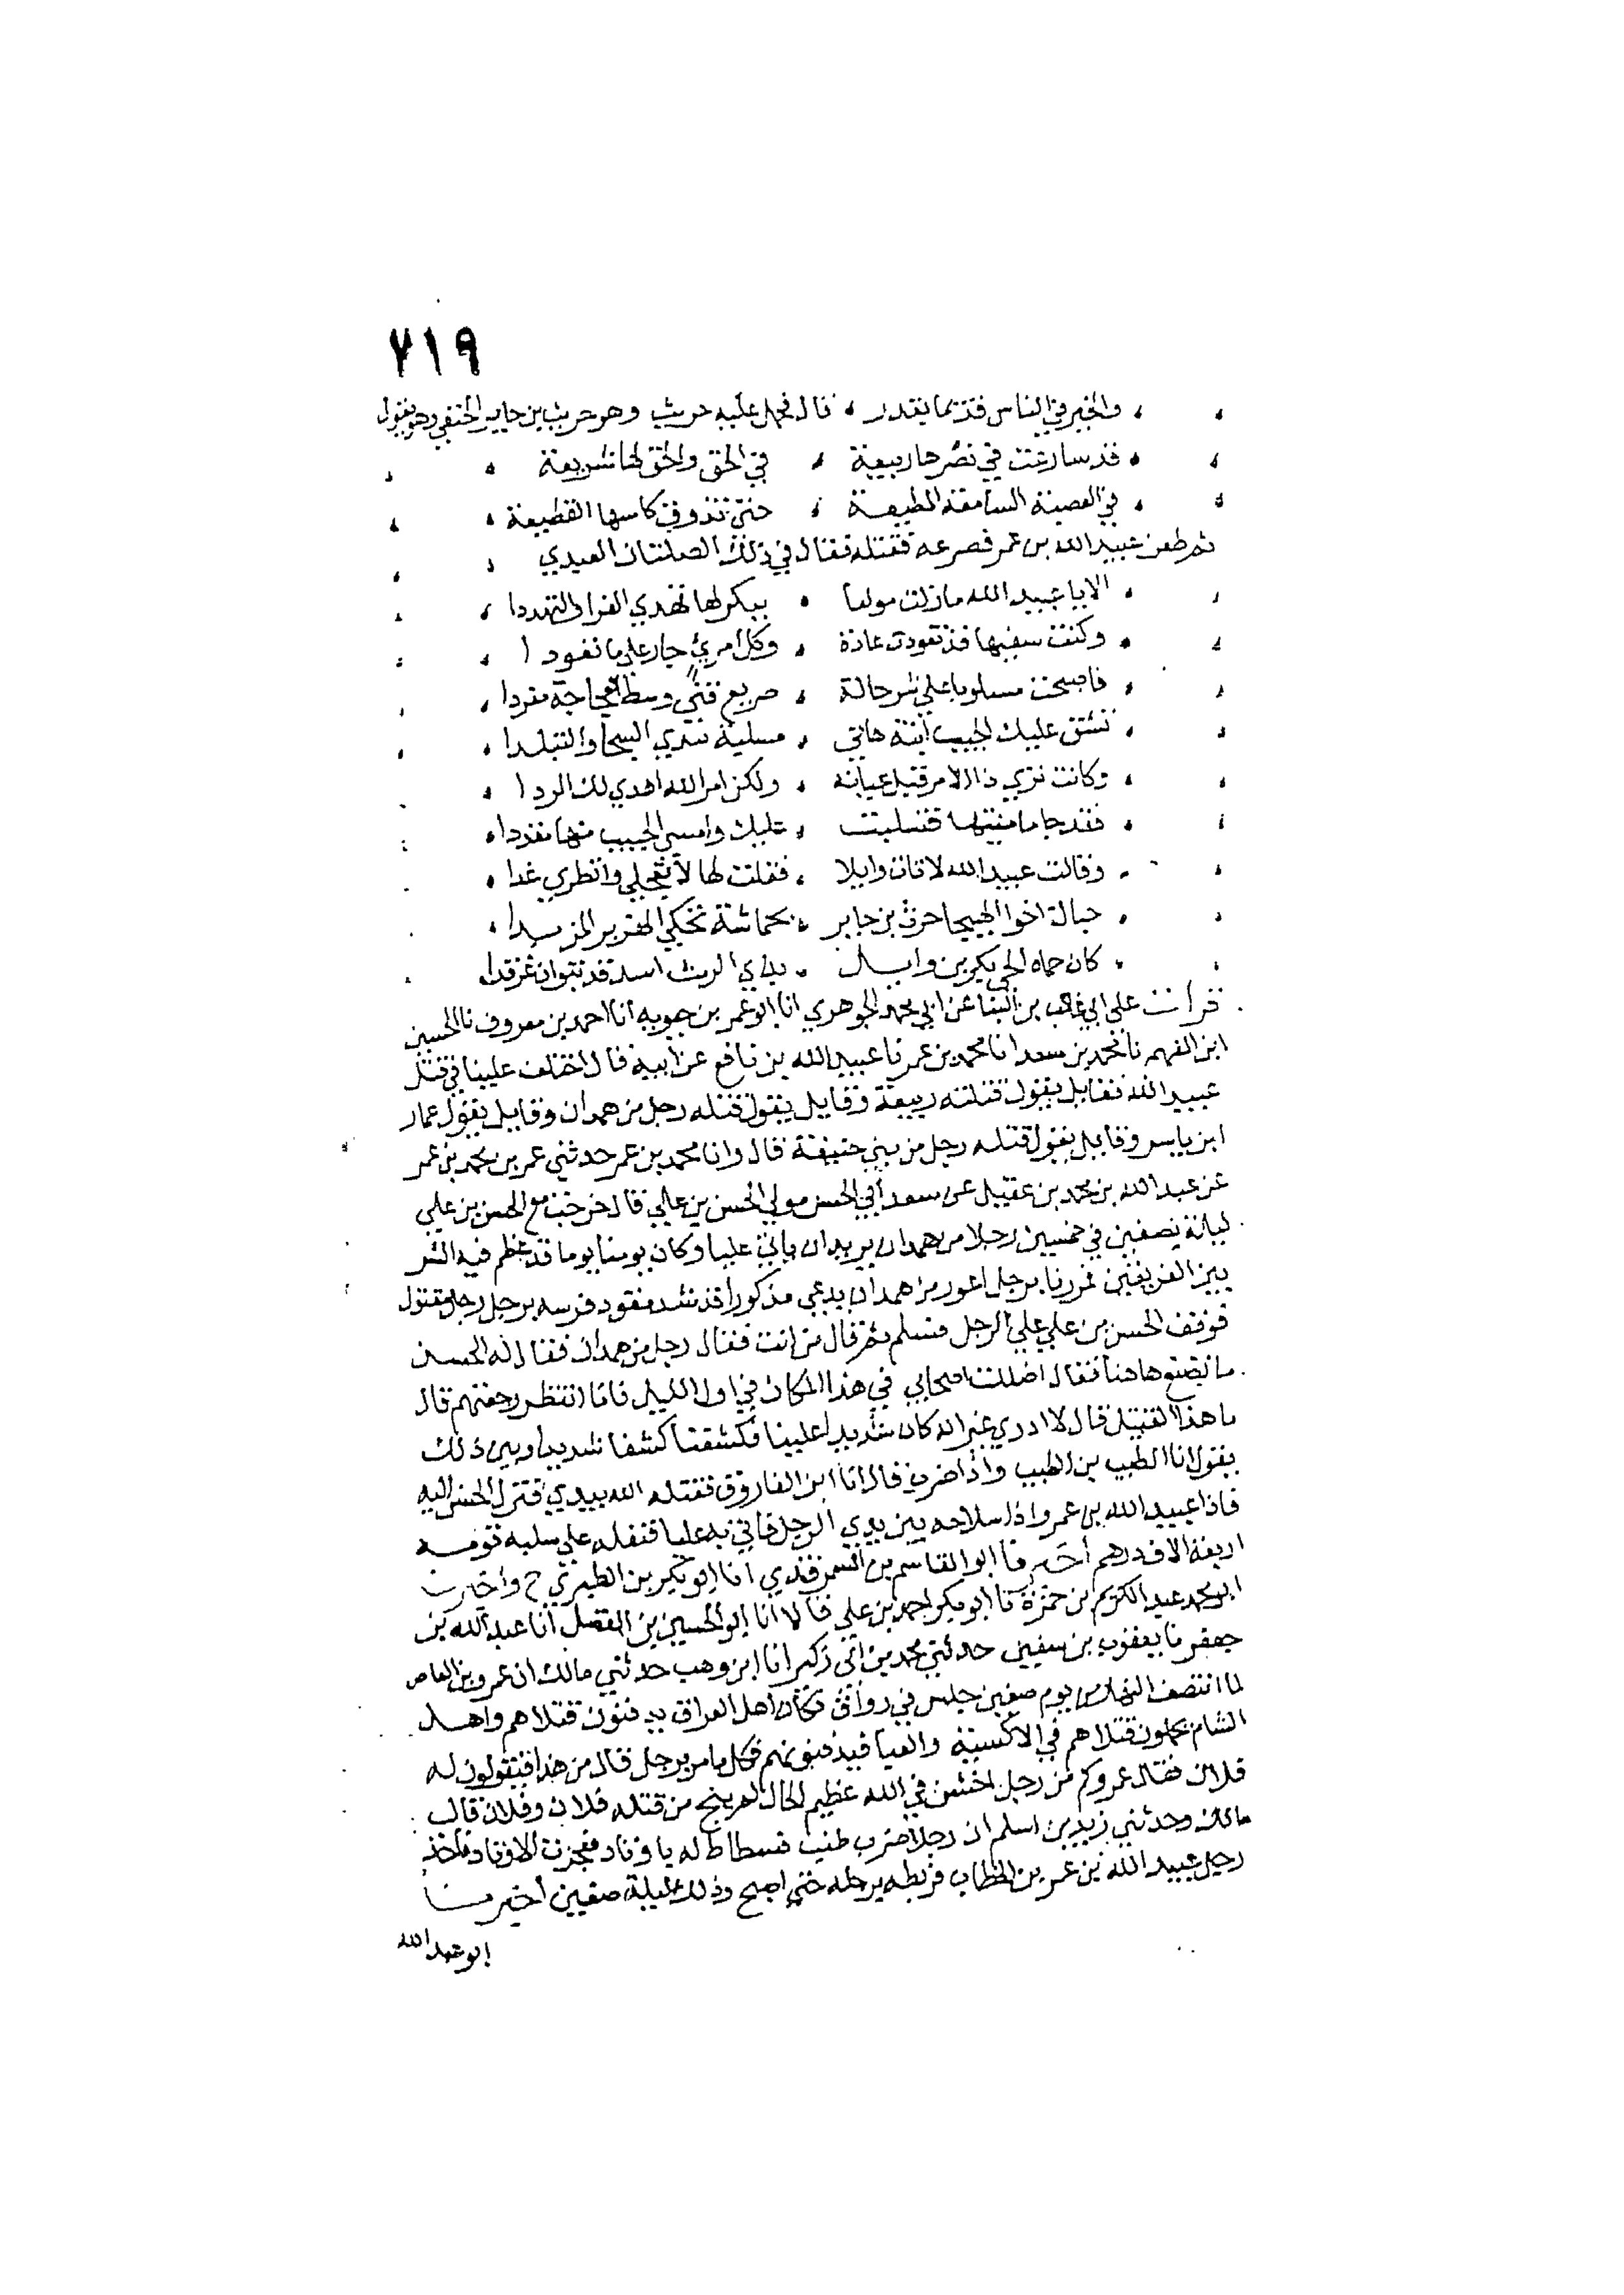 ٧١٩
والخير في الناس قديما يقدر ، قال فحمل عليه حريث وهو حريث بن جابر الحنفي وهو يقول
قد سارعت في نصرها ربيعة ، في الحق والحق لها شريعة
في العصبة السامعة المطيعة ، حتى تذوق كاسها القطيعة
ثم طعن عبيد الله بن عمر فصرعه فقتله فقال في ذلك الصلتان العبدي
الا يا عبيد الله ما زلت مولعا ، ببكر لها تهدي القرا والتهددا
وكنت سفيها قد تعودت عادة ، وكل امرئ جار على ما تعودا
فاصبحت مسلوبا على شر حالة ، صريع قنى وسط العجاجة مفردا
تشق عليك الجيب ابنة هاني ، مسلبة تبدي الشجا والتبلدا
وكانت ترى ذا الامر قبل عيانه ، ولكن امر الله اهدى لك الردا
فقد جا ما منيتها فتسلبت ، عليك وامسى الجيب منها مقددا
وقالت عبيد الله لا تات وايلا ، فقلت لها لا تعجلي وانظري غدا
حباك اخو الهيجا حريث بن جابر ، بجياشة تحكي الهدير المزبدا
كان حماه الحي بكر بن وايل ، بذي الرمث اسد قد تبوان غرقدا
قرات على ابي غالب بن البنا عن ابي محمد الجوهري انا ابو عمر بن حيويه انا احمد بن معروف نا الحسين
ابن الفهم نا محمد بن سعد انا محمد بن عمر نا عبيد الله بن نافع عن ابيه قال اختلف علينا في قتل
عبيد الله فقايل يقول قتلته ربيعة وقايل يقول قتله رجل من همدان وقايل يقول عمار
ابن ياسر وقايل يقول قتله رجل من بني حنيفة قال وانا محمد بن عمر حدثني عمر بن محمد بن عمر
عن عبد الله بن محمد بن عقيل عن سعد ابي الحسن مولى الحسن بن علي قال خرجت مع الحسن بن علي
ليلة بصفين في خمسين رجلا من همدان يريدان ياتي عليا وكان يومنا يوما قد عظم فيه الشر
بين الفريقين فمررنا برجل اعور من همدان يدعى مذكورا قد شد مقود فرسه برجل رجل مقتول
فوقف الحسن بن علي على الرجل فسلم ثم قال من انت فقال رجل من همدان فقال له الحسن
ما تصنع هاهنا فقال اضللت اصحابي في هذا المكان في اول الليل فانا انتظر رجعتهم قال
ما هذا القتيل قال لا ادري غير انه كان شديدا علينا فكشفنا كشفا شديدا وبين ذلك
يقول انا الطيب بن الطيب واذا ضرب قال انا ابن الفاروق فقتله الله بيدي فنزل الحسن اليه
فاذا عبيد الله بن عمر واذا سلاحه بين يدي الرجل فاتي به عليا فنفله علي سلبه قومه
اربعة الاف درهم اخبرنا ابو القاسم بن السمرقندي انا ابو بكر بن الطبري ح واخبرنا
ابو محمد عبد الكريم بن حمزة نا ابو بكر احمد بن علي قالا انا ابو الحسين بن الفضل انا عبد الله بن
جعفر نا يعقوب بن سفين حدثني محمد بن ابي زكير انا ابن وهب حدثني مالك ان عمرو بن العاص
لما انتصف النهار من يوم صفين جلس في رواق فكان اهل العراق يدفنون قتلاهم واهل
الشام يحملون قتلاهم في الاكسية والعبا فيدفنونهم فكل ما مر برجل قال من هذا فيقولون له
فلان فقال عمرو كم من رجل اخشن في الله عظيم الحال لم ينج من قتله فلان وفلان قال
مالك وحدثني زيد بن اسلم ان رجلا ضرب طنب فسطاط له باوتاد فعجزت الاوتاد فاخذ
رجل عبيد الله بن عمر بن الخطاب فربطه برجله حتى اصبح وذلك ليلة صفين اخبرنا
ابو عبد الله